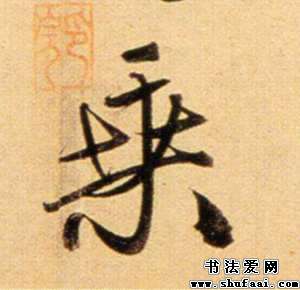 乗
书法爱网
www.shufaai.com